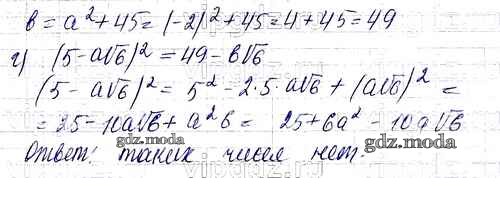 в = a² + 45 = (-2)² + 45 = 4 + 45 = 49
г) (5 - a√6)² = 49 - в√6
(5 - a√6)² = 5² - 2·5·a√6 + (a√6)² =
= 25 - 10a√6 + a²6 = 25 + 6a² - 10a√6
Ответ: таких чисел нет.
gdz.moda
gdz.moda